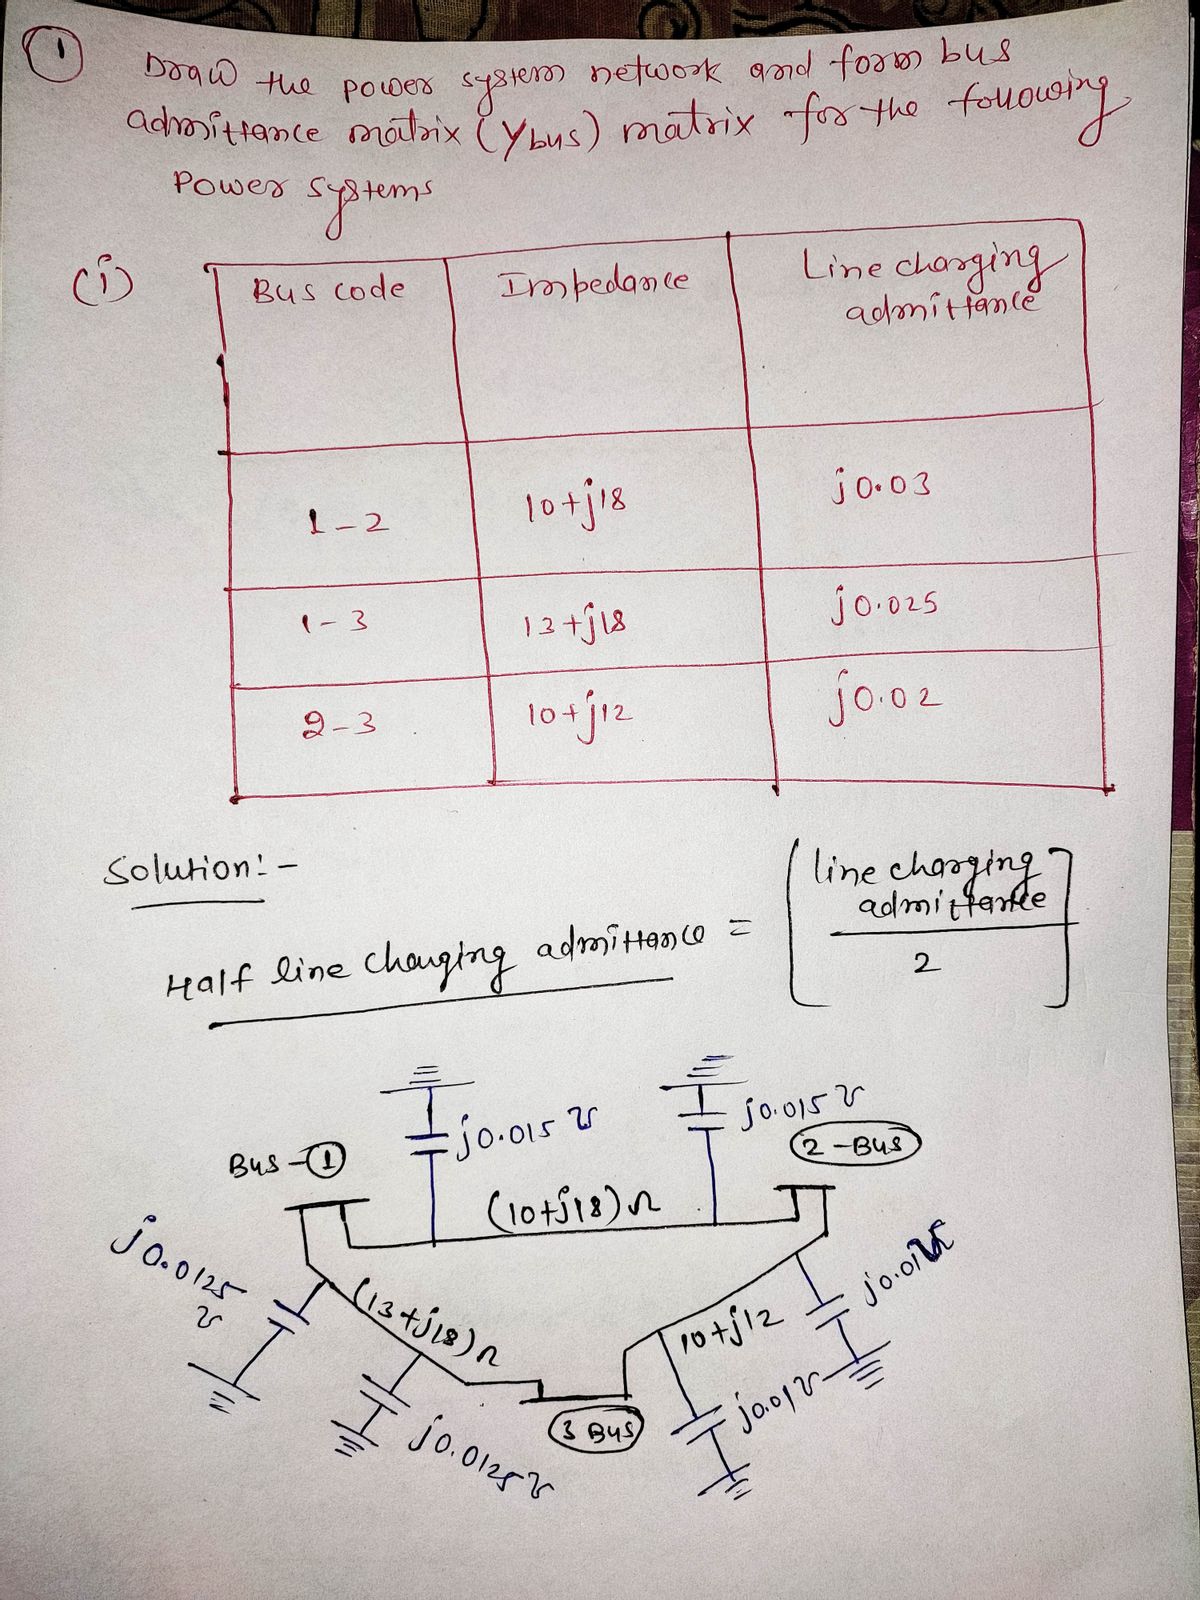 1
Draw the power system network and form bus
admittance matrix (Ybus) matrix for the following
Power systems
(i)
Bus code Impedance Line charging
admittance
1-2 10+j18 j0.03
1-3 13+j18 j0.025
2-3 10+j12 j0.02
Solution:-
Half line charging admittance = [line charging
admittance
2]
j0.015 ℧ j0.015 ℧
Bus-1 2-Bus
(10+j18)Ω
j0.0125
℧
(13+j18)Ω
10+j12
j0.01℧
3 Bus
j0.0125℧